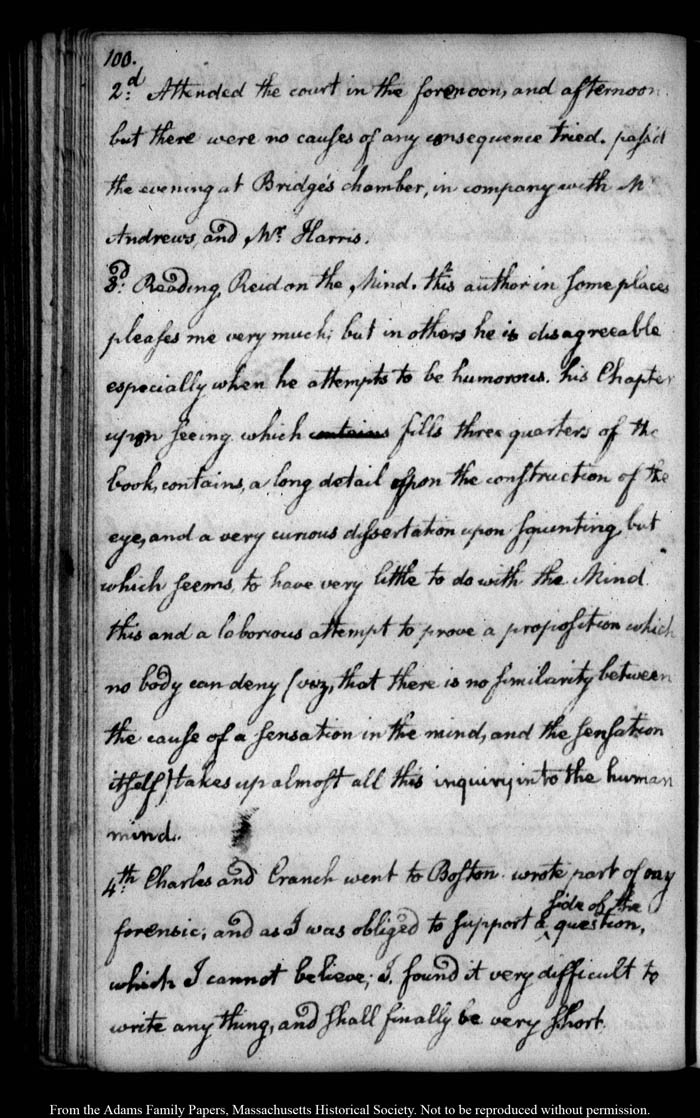 100.
2.d Attended the court in the forenoon, and afternoon
but there were no causes of any consequence tried. pass'd
the evening at Bridge's chamber, in company with Mr
Andrews, and Mr. Harris.
3.d Reading Reid on the Mind. this author in some places
pleases me very much; but in others he is disagreeable
especially when he attempts to be humorous. his Chapter
upon seeing which contains fills three quarters of the
book, contains, a long detail upon the construction of the
eye, and a very curious dissertation upon squinting, but
which seems, to have very little to do with the Mind.
this and a laborious attempt to prove a proposition which
no body can deny (viz, that there is no similarity between
the cause of a sensation in the mind, and the sensation
itself) takes up almost all this inquiry into the human
mind.
4.th Charles and Cranch went to Boston. wrote part of my
forensic; and as I was obliged to support a side of the question,
which I cannot believe; I found it very difficult to
write any thing, and shall finally be very short.
From the Adams Family Papers, Massachusetts Historical Society. Not to be reproduced without permission.